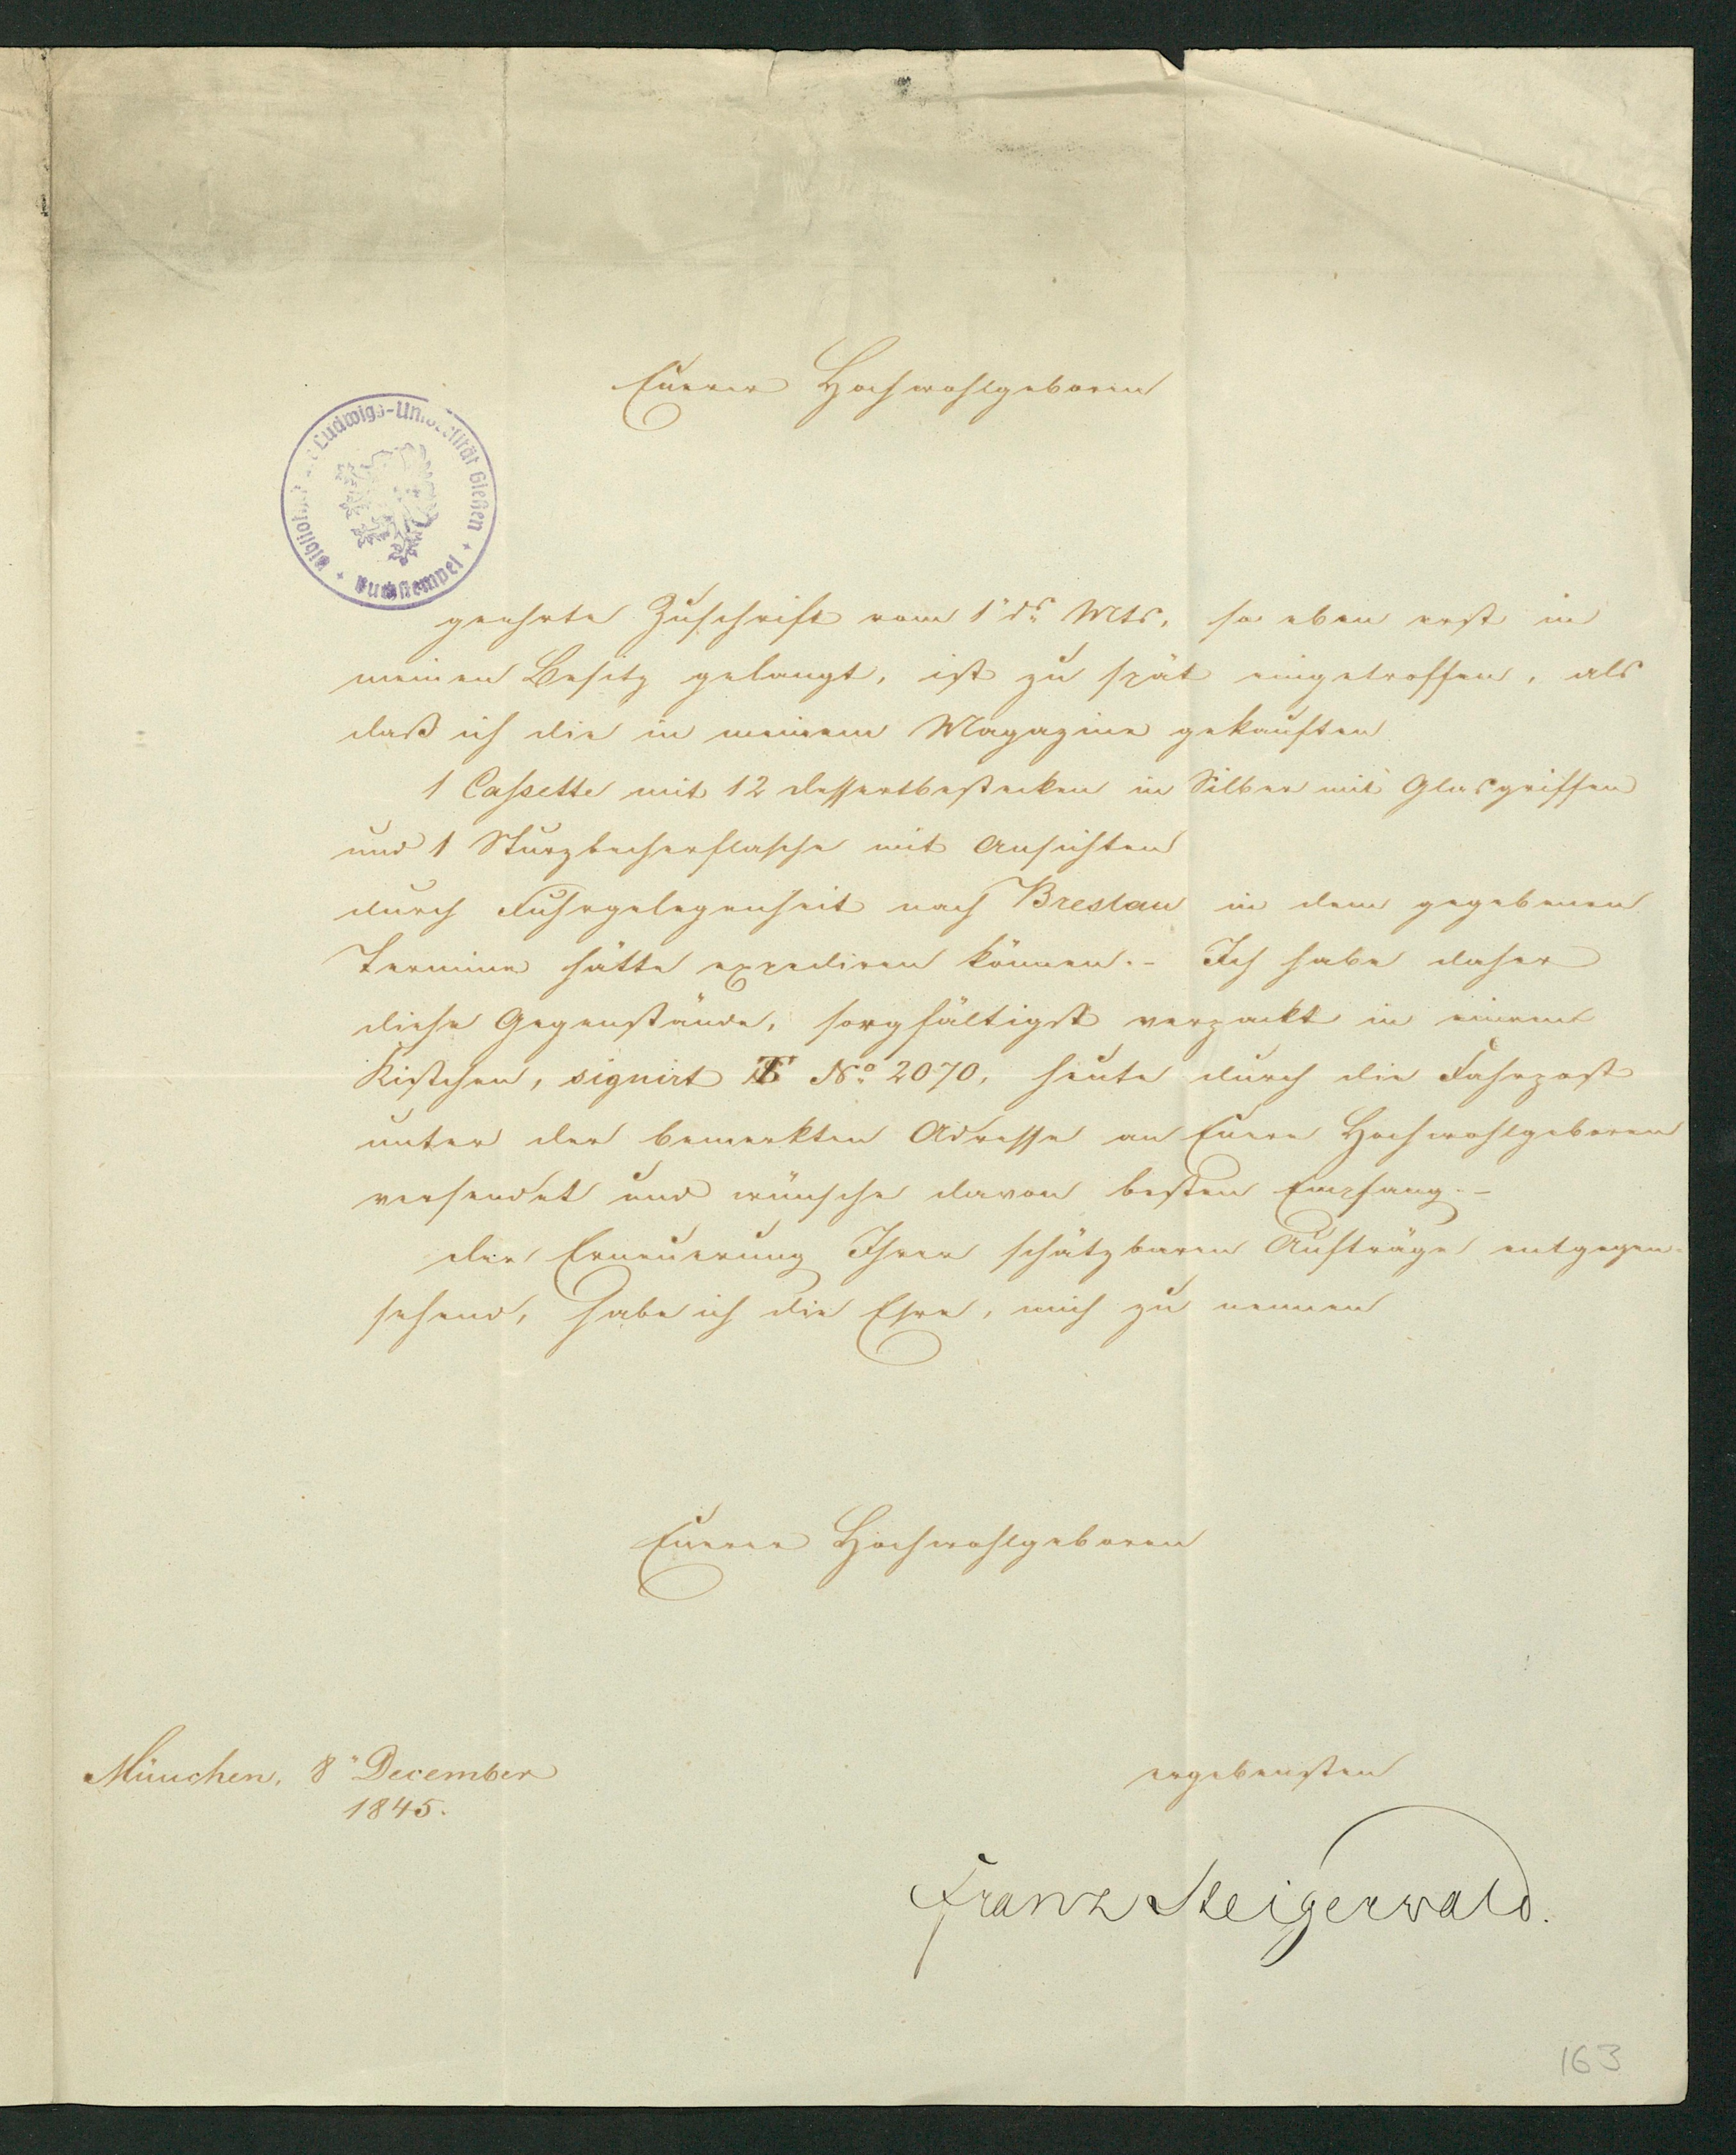 Euerer Hochwohlgeboren
Bibliothek der Ludwigs-Universität Gießen + Buchstempel +
geehrte Zuschrift vom 1" ds. Mts., so eben erst in
meinen Besitz gelangt, ist zu spät eingetroffen, als
daß ich die in meinem Magazine gekauften
1 Cassette mit 12 Dessertbestecken in Silber mit Glasgriffen
und 1 Sturzbecherflasche mit Ansichten
durch Fuhrgelegenheit nach Breslau in dem gegebenen
Termine hätte expediren können.- Ich habe daher
diese Gegenstände, sorgfältigst verpackt in einem
Kistchen, signirt No. 2070, heute durch die Fahrpost
unter der bemerkten Adresse an Euere Hochwohlgeboren
versendet und wünsche davon besten Empfang.-
Der Erneuerung Ihrer schätzbaren Aufträge entgegen-
sehend, habe ich die Ehre, mich zu nennen
Euerer Hochwohlgeboren
München, 8" December
1845.
ergebensten
Franz Steigerwald.
163